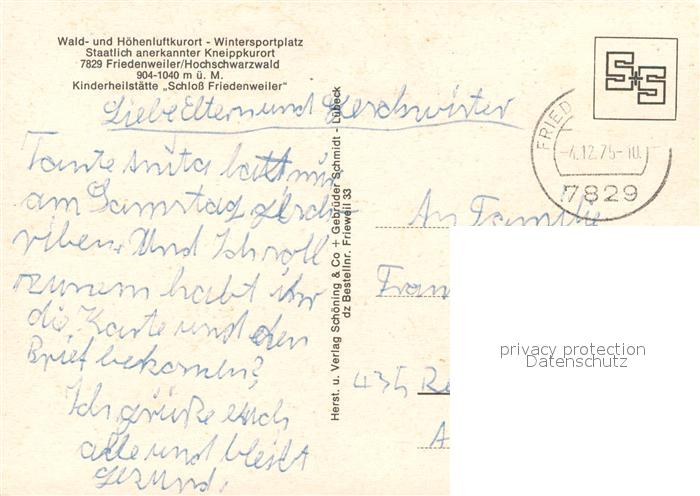 Wald- und Höhenluftkurort - Wintersportplatz
Staatlich anerkannter Kneippkurort
7829 Friedenweiler/Hochschwarzwald
904-1040 m ü. M.
Kinderheilstätte „Schloß Friedenweiler"
Liebe Eltern und Geschwister
Tante Anita hatt mir
am Samstag geschr
riben. Und Ich
habt ihr
die Karte und den
Brief bekomen?
Ich grüße euch
alle und bleibt
Gesund.
Herst. u. Verlag Schöning & Co + Gebrüder Schmidt - Lübeck
dz Bestellnr. Frieweil 33
S+S
FRIED
-4.12.75-10
7829
An Familie
Fran
435 Re
A
privacy protection
Datenschutz